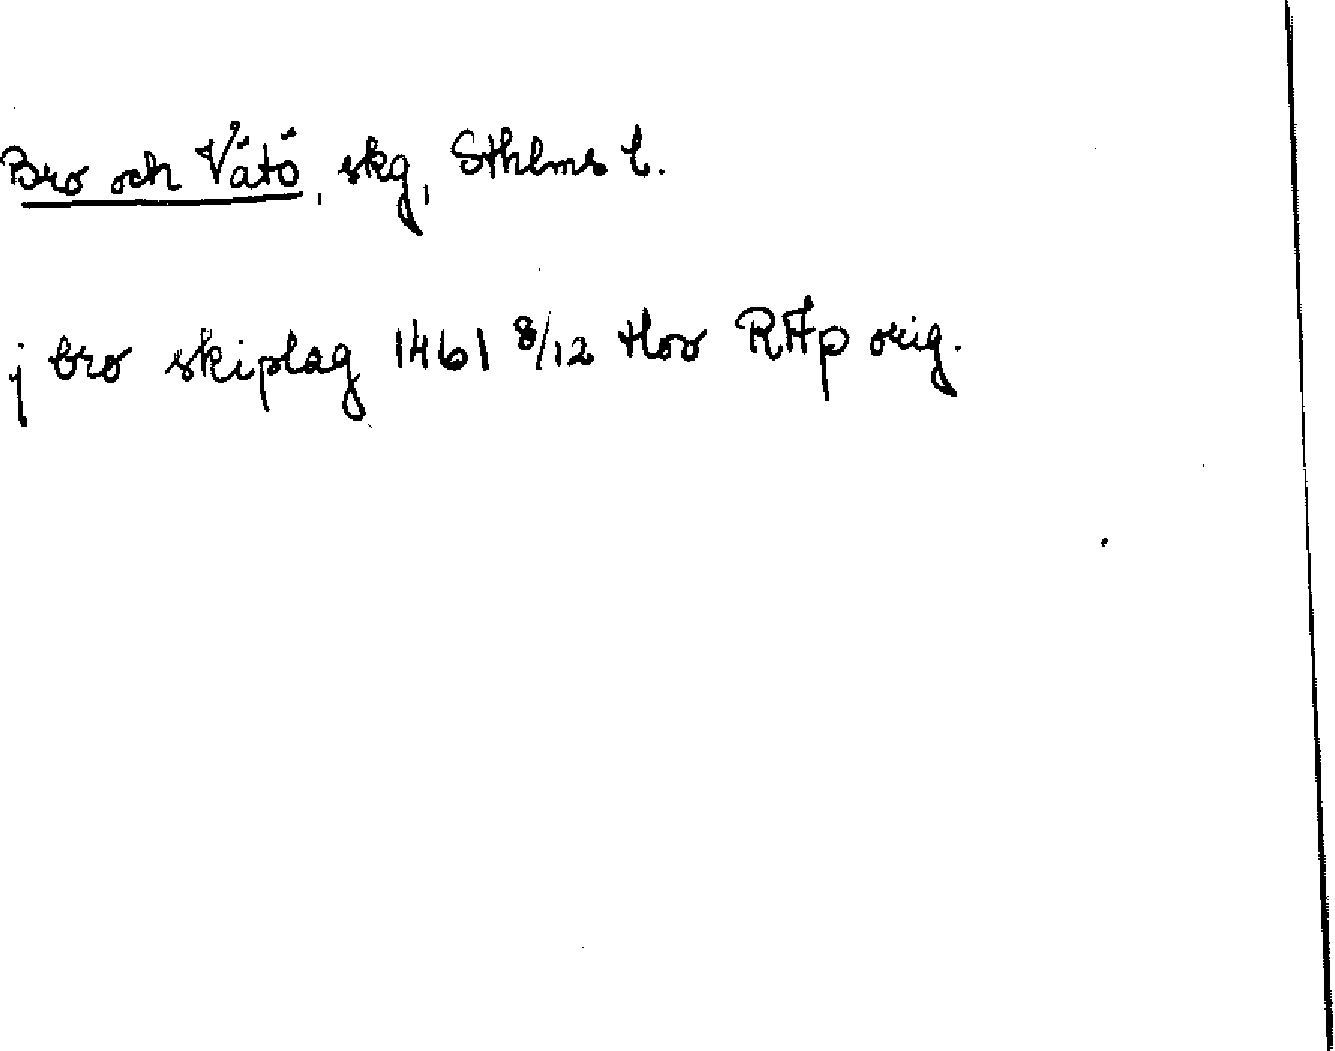 Bro och Vätö, skg, Sthlms l.
j bro skiplag 1461 8/12 Hov RAp orig.